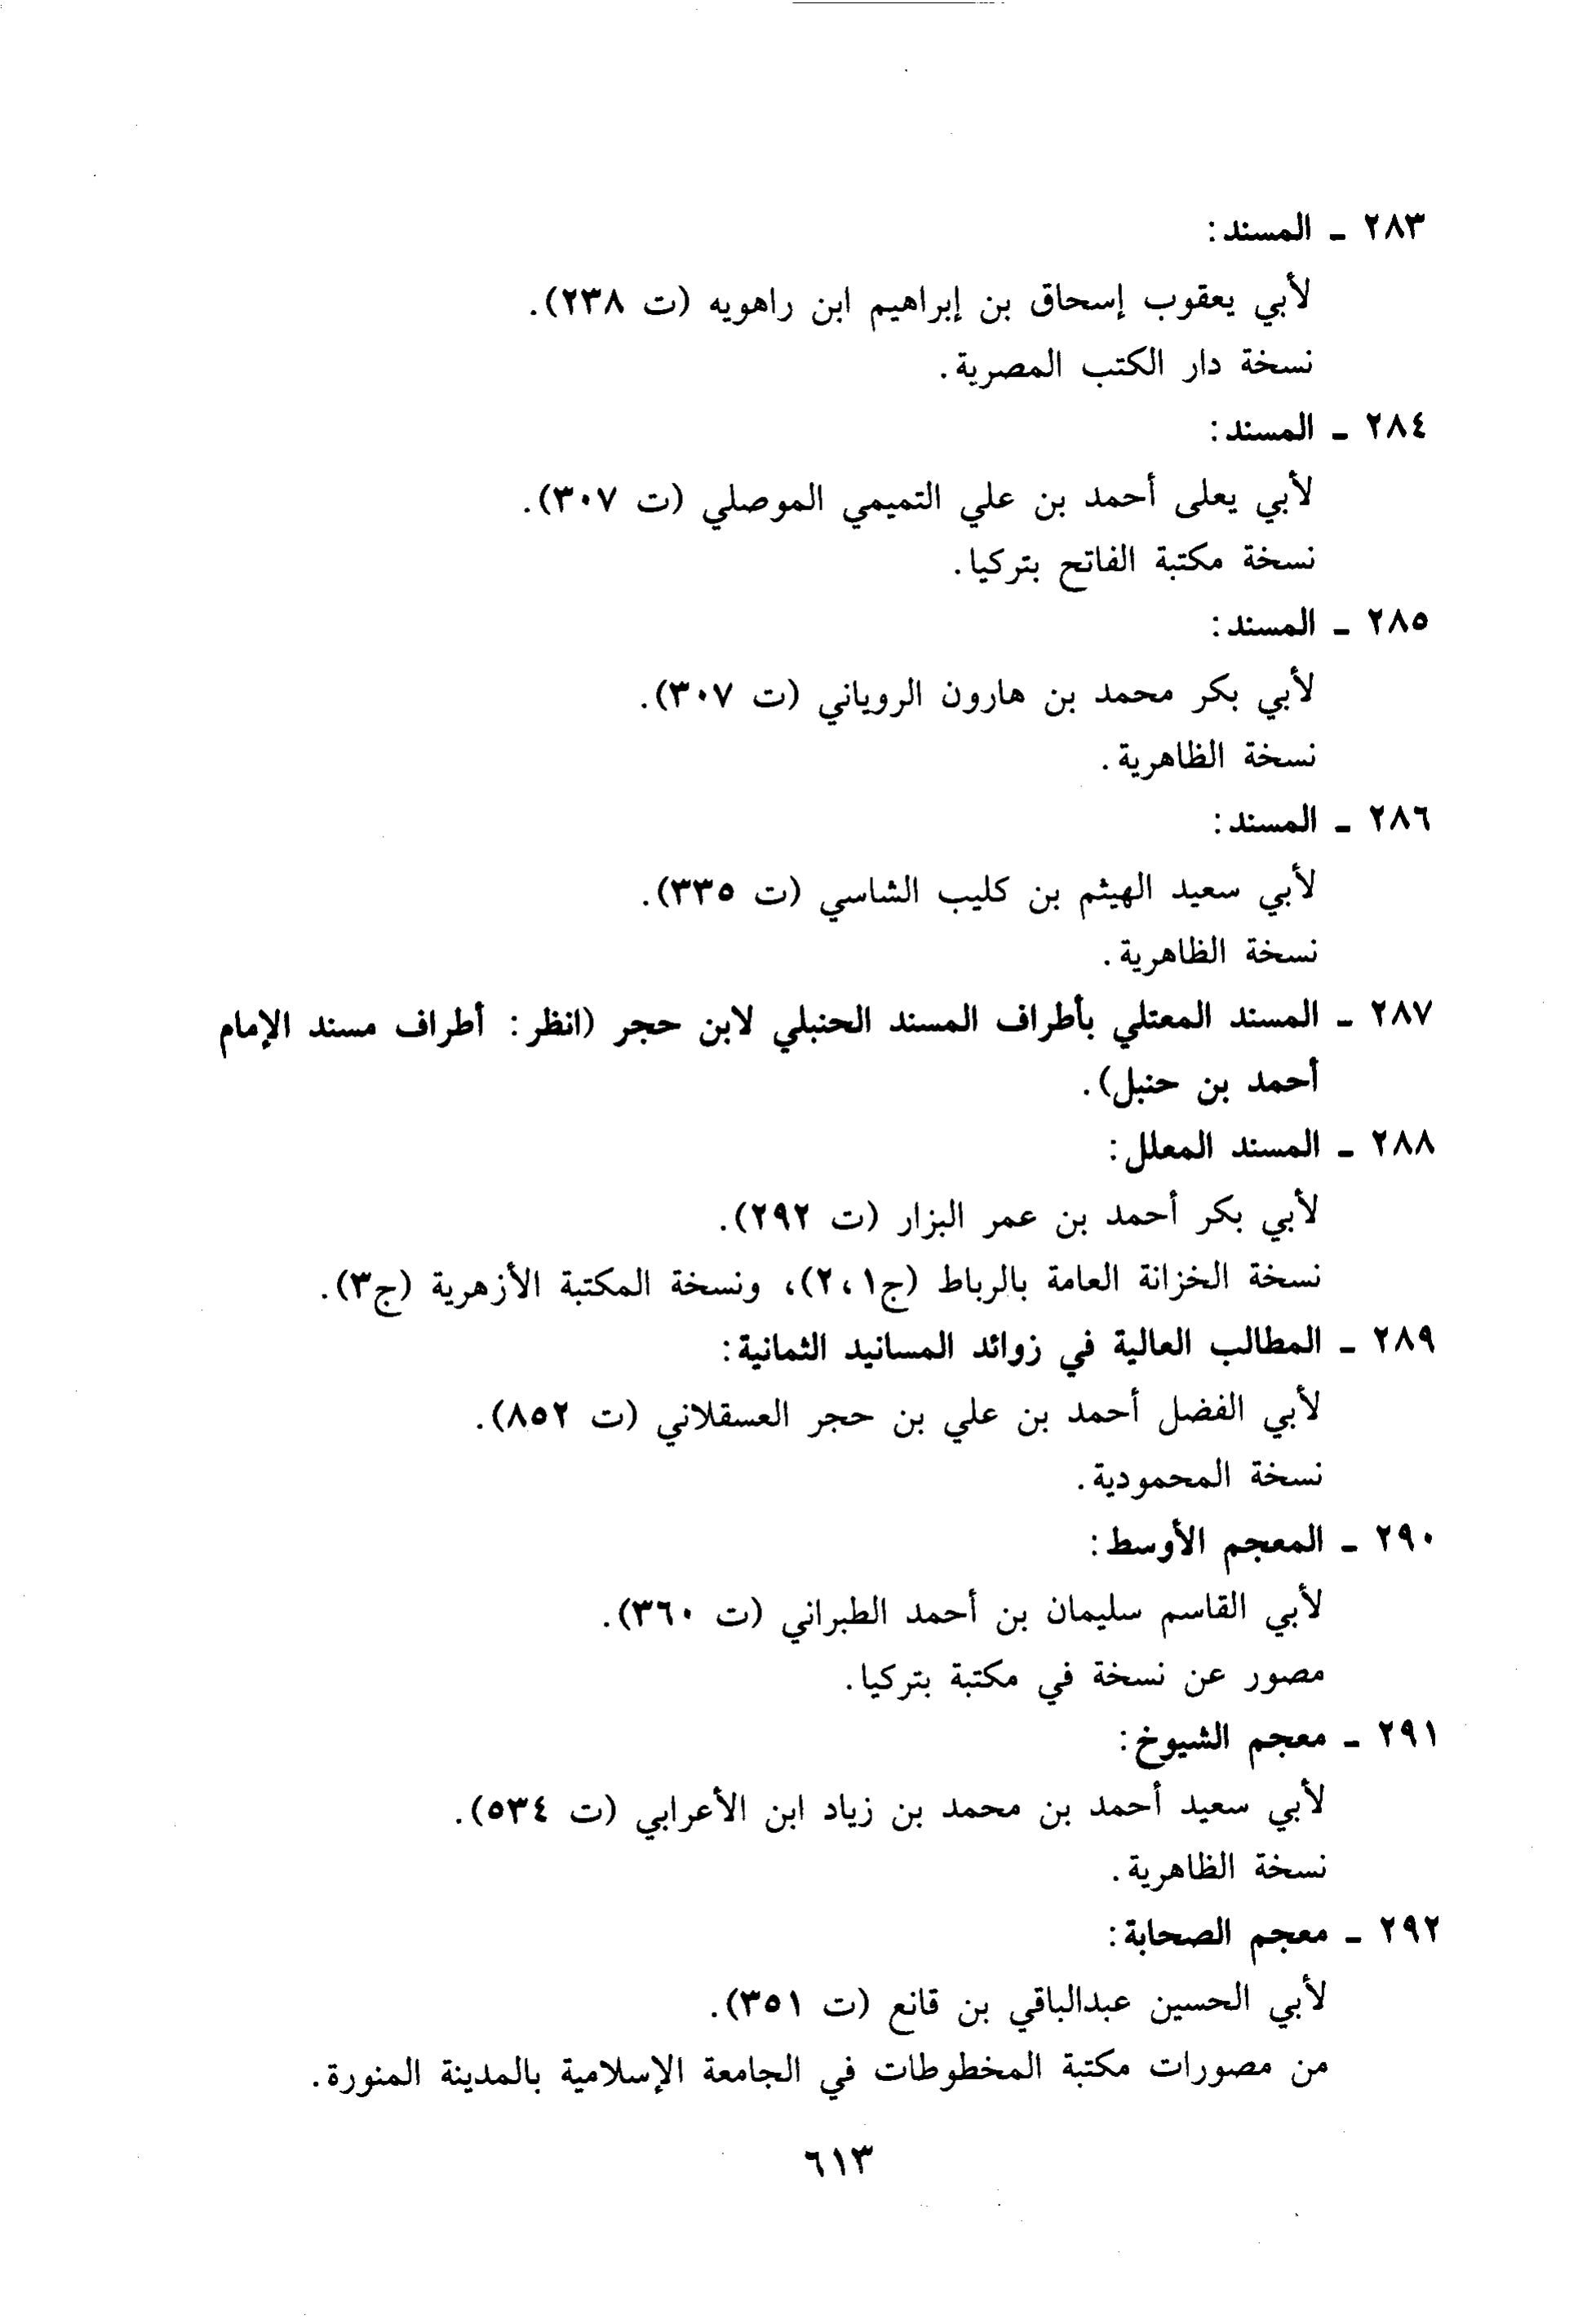 ٢٨٣ ـ المسند:
لأبي يعقوب إسحاق بن إبراهيم ابن راهويه (ت ٢٣٨).
نسخة دار الكتب المصرية.
٢٨٤ ـ المسند:
لأبي يعلى أحمد بن علي التميمي الموصلي (ت ٣٠٧).
نسخة مكتبة الفاتح بتركيا.
٢٨٥ ـ المسند:
لأبي بكر محمد بن هارون الروياني (ت ٣٠٧).
نسخة الظاهرية.
٢٨٦ ـ المسند:
لأبي سعيد الهيثم بن كليب الشاسي (ت ٣٣٥).
نسخة الظاهرية.
٢٨٧ ـ المسند المعتلي بأطراف المسند الحنبلي لابن حجر (انظر: أطراف مسند الإمام
أحمد بن حنبل).
٢٨٨ ـ المسند المعلل:
لأبي بكر أحمد بن عمر البزار (ت ٢٩٢).
نسخة الخزانة العامة بالرباط (ج١، ٢)، ونسخة المكتبة الأزهرية (ج٣).
٢٨٩ ـ المطالب العالية في زوائد المسانيد الثمانية:
لأبي الفضل أحمد بن علي بن حجر العسقلاني (ت ٨٥٢).
نسخة المحمودية.
٢٩٠ ـ المعجم الأوسط:
لأبي القاسم سليمان بن أحمد الطبراني (ت ٣٦٠).
مصور عن نسخة في مكتبة بتركيا.
٢٩١ ـ معجم الشيوخ:
لأبي سعيد أحمد بن محمد بن زياد ابن الأعرابي (ت ٥٣٤).
نسخة الظاهرية.
٢٩٢ ـ معجم الصحابة:
لأبي الحسين عبدالباقي بن قانع (ت ٣٥١).
من مصورات مكتبة المخطوطات في الجامعة الإسلامية بالمدينة المنورة.
٦١٣